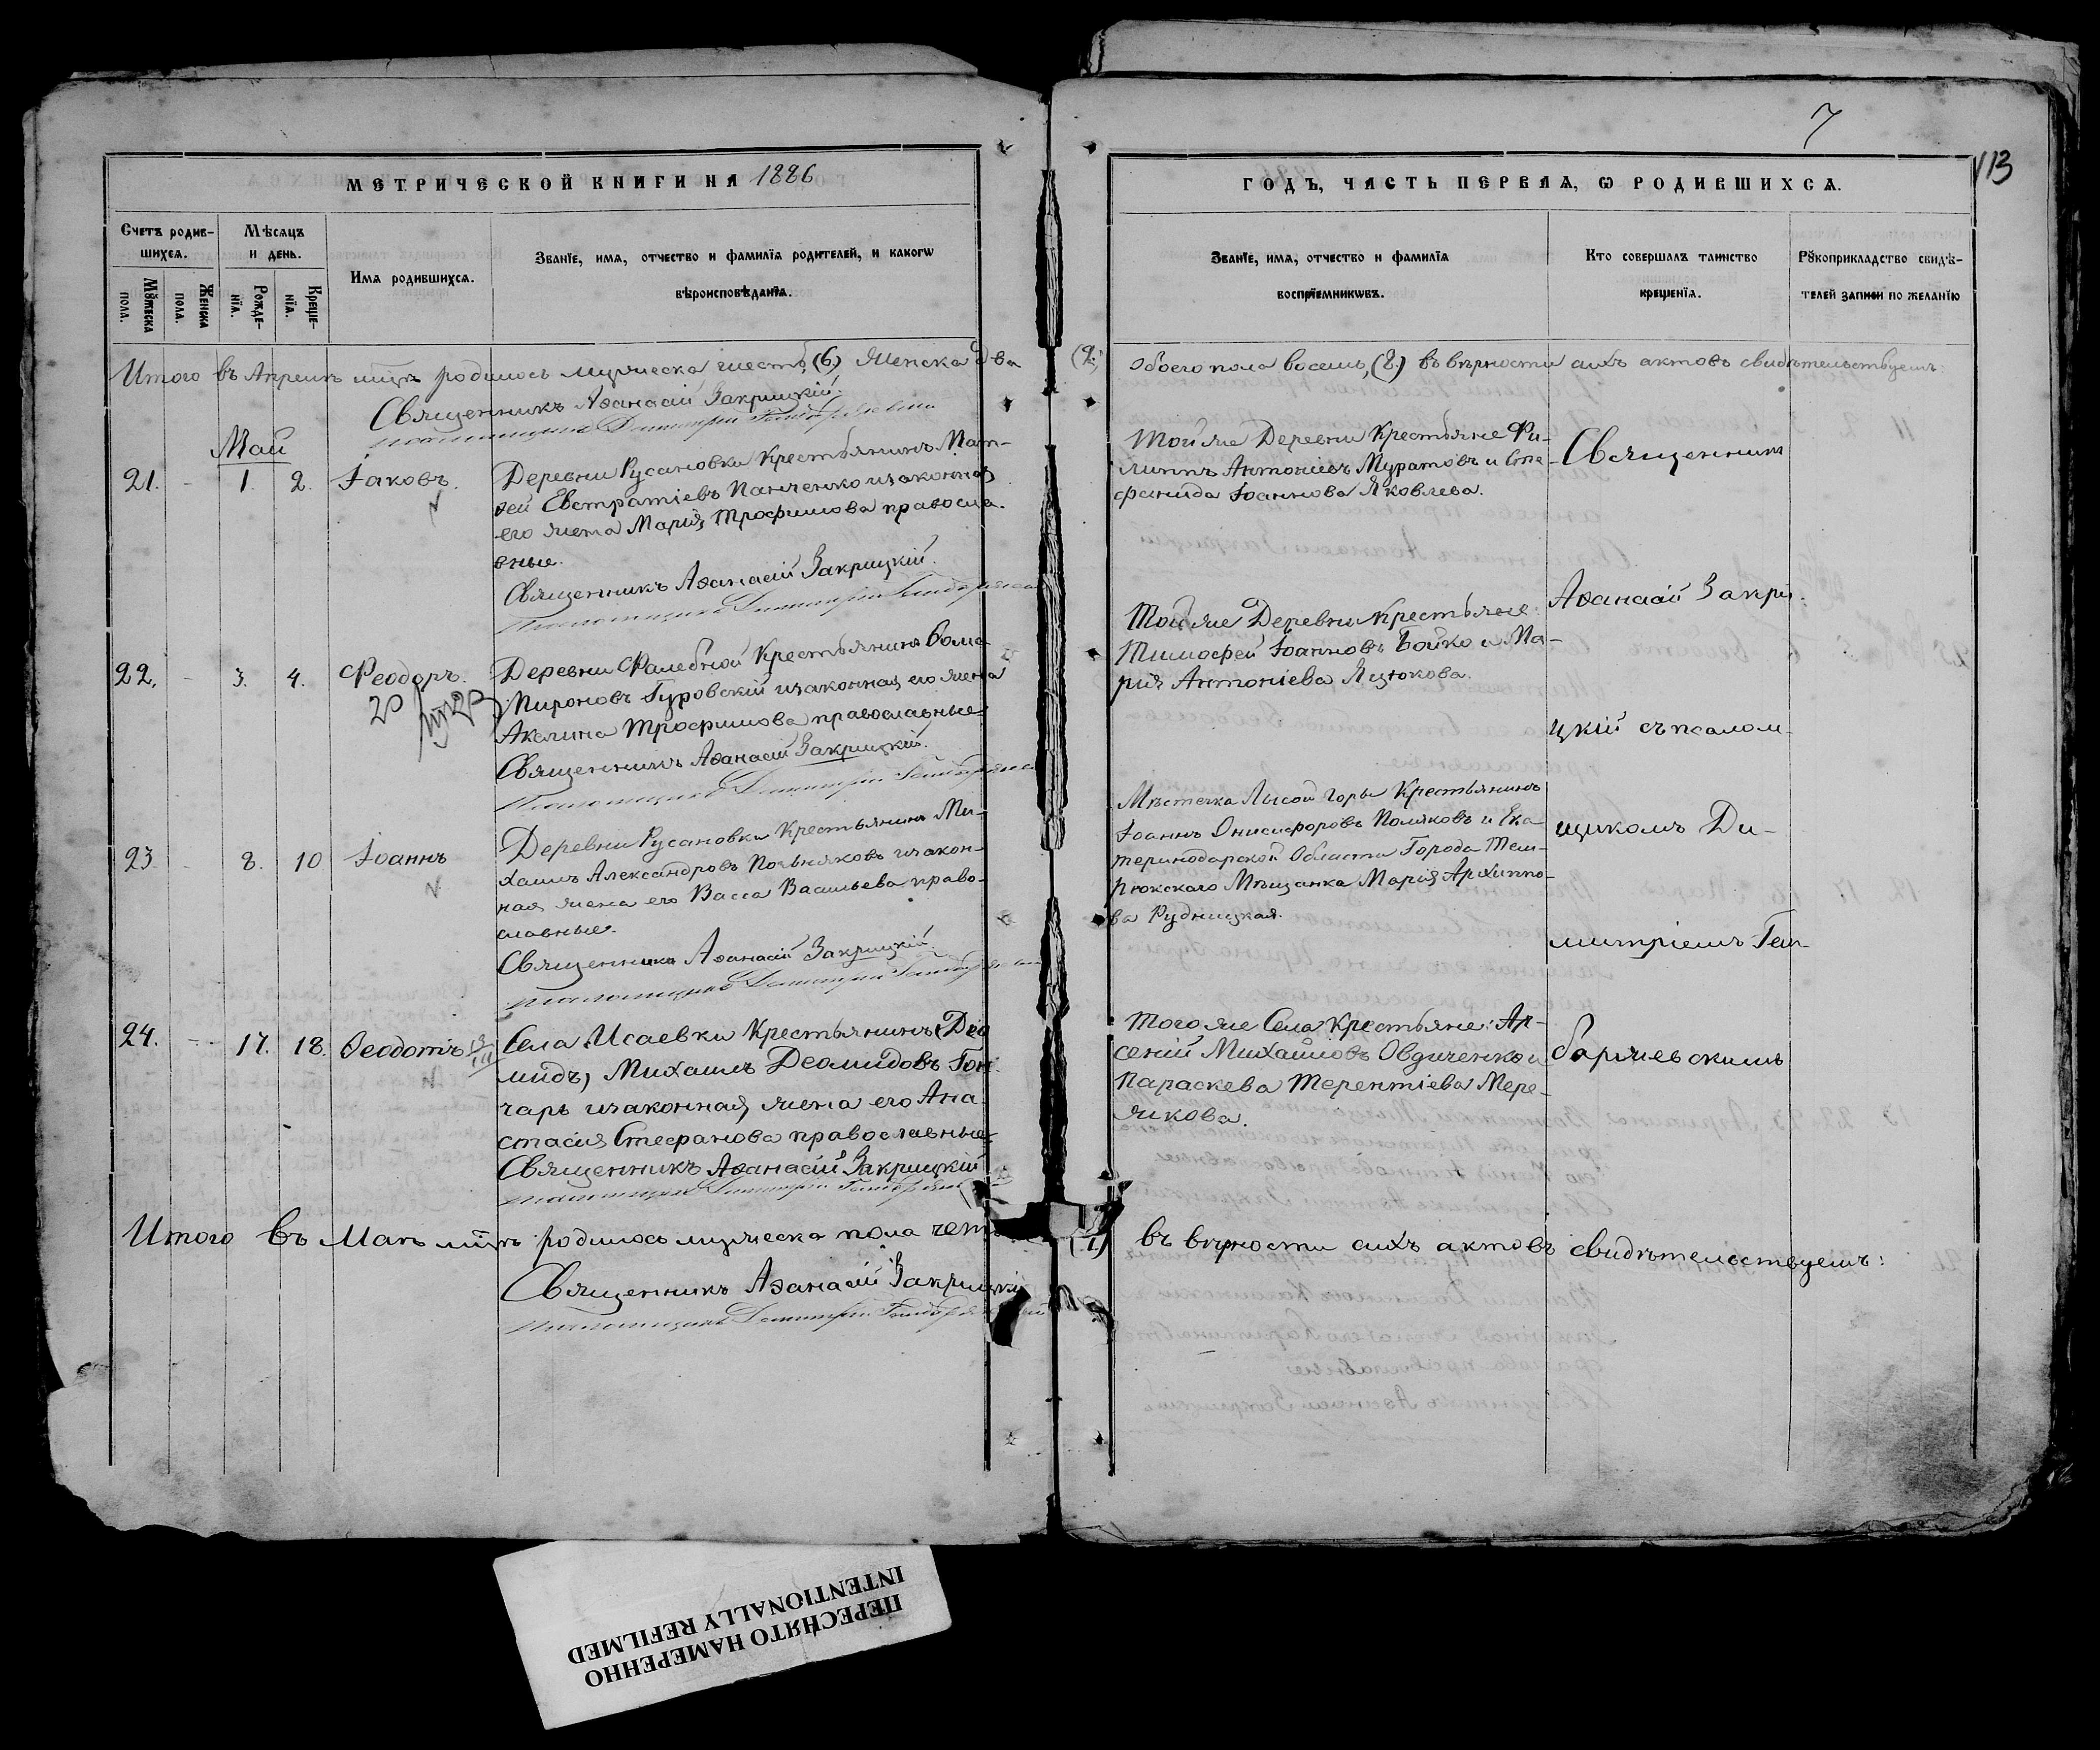 7
113
МЕТРИЧЕСКОЙ КНИГИ НА 1886
ГОДЪ, ЧАСТЬ ПЕРВАЯ, Ѡ РОДИВШИХСѦ.
Счетъ родив-
шихсѧ.
Мѹжеска
пола.
Женска
пола.
Мѣсѧцъ
и день.
Рожде-
нїѧ.
Креще-
нїѧ.
Имѧ родившихсѧ.
Званїе, имѧ, отчество и фамилїѧ родителей, и какогѡ
вѣроисповѣданїѧ.
Званїе, имѧ, отчество и фамилїѧ
воспрїемникѡвъ.
Кто совершалъ таинство
крещенїѧ.
Рѹкоприкладство свидѣ-
телей записи по желанїю
Итого въ Апрелѣ мцѣ родилось мужеска шесть, (6.) Женска два
(2.) обоего пола восемь, (8.) въ вѣрности сихъ актовъ свидѣтельствуемъ:
Священникъ Аѳанасій Закрицкій.
Май
21. - 1. 2. Іаковъ.
Деревни Русановки Крестьянинъ Мат-
ѳей Евстратіевъ Панченко и законная
его жена Марія Трофимова правосла-
вные.
Священникъ Аѳанасій Закрицкій.
Той же Деревни Крестьяне Фи-
липпъ Антоніевъ Муратовъ и Сте-
фанида Іоаннова Яковлева.
22. - 3. 4. Феодоръ.
Деревни Фалебной Крестьянинъ Ѳома
Мироновъ Гуровскій и законная его жена
Акелина Трофимова православные
Священникъ Аѳанасій Закрицкій.
Той же Деревни Крестьяне
Тимофей Іоанновъ Бойко и Ма-
рия Антоніева Яцюкова.
23. - 8. 10 Іоаннъ
Деревни Русановки Крестьянинъ Ми-
хаилъ Александровъ и закон-
ная жена его Васса Васильева право-
славные.
Священникъ Аѳанасій Закрицкій.
Мѣстечка Лысой Горы Крестьянинъ
Іоаннъ Онисифоровъ Поляковъ и Ека-
теринодарской Области Города Тем-
рюкскаго Мѣщанка Марія Архиппо-
ва Рудницкая.
24. - 17. 18. Ѳеодотъ
Села Исаевки Крестьянинъ (Део
мидъ) Михаилъ Деомидовъ Гон-
чаръ и законная жена его Ана-
стасія Стефанова православные
Священникъ Аѳанасій Закрицкій
Того же Села Крестьяне: Ар-
сеній Михайловъ Овдиченко и
Параскева Терентіева Мере-
жкова.
Священникъ
Аѳанасій Закри-
цкій съ псалом-
щикомъ Ди-
митріемъ Гем-
боржевскимъ
Итого въ Маѣ мцѣ родилось мужеска пола
въ вѣрности сихъ актовъ свидѣтельствуемъ:
Священникъ Аѳанасій Закрицкій
ПЕРЕСНЯТО НАМЕРЕННО
INTENTIONALLY REFILMED